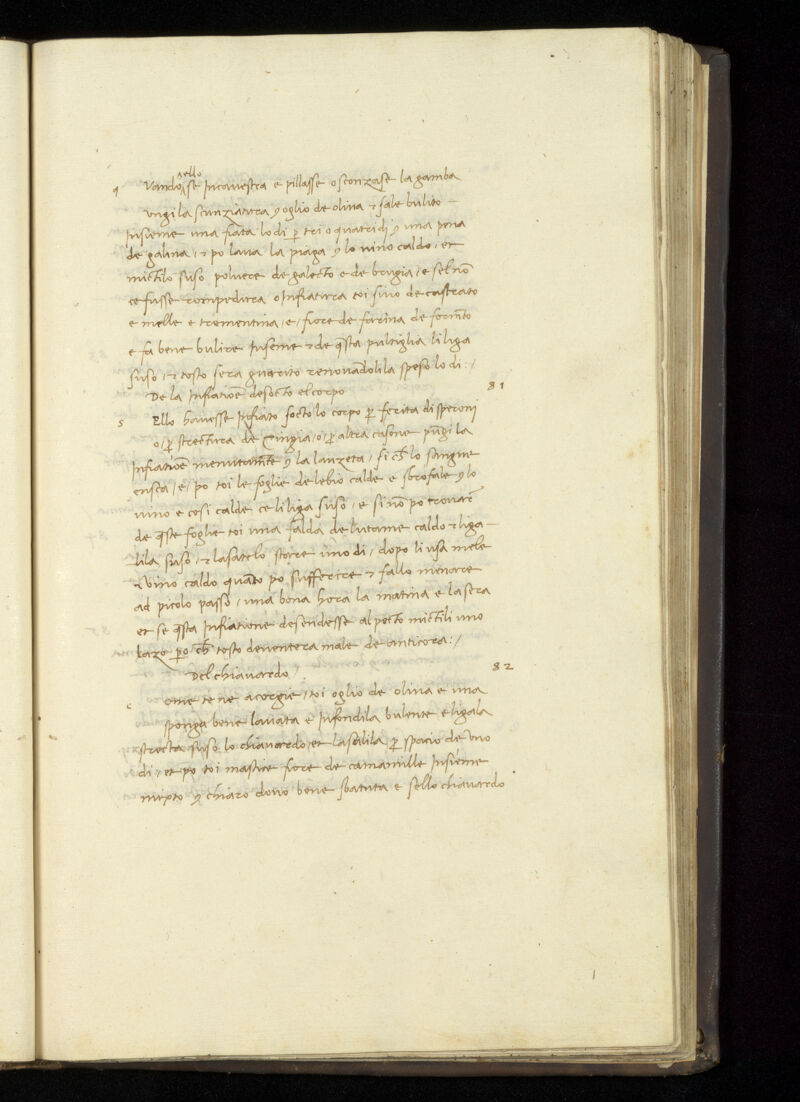 q Vando ello se Incavestra e pillasse o sconzasse la gamba
ungi la scunziatura ꝯ oglio de oliva et sale bulito
Insieme una fiata lo di ꝑ tri o quatri di ꝯ una pena
de galina, et po lava la piaga ꝯ lo vino caldo, et
mictilo suso polvere de galecto e de brugia, e sel nō
ce fusse rompedura o Infiatura toi sivo de castrato
e melle e trementina, e, fiore de farina de formēto
e fa bene bulire Insieme et de q̄sta pultiglia li liga
suso, et tosto sera guarito renovandolila speso lo di:/
De la Infiatiōe de socto el corpo 81
s Ello havesse Infiato socto lo corpo ꝑ ferita di speroni
o, ꝑ strectura de Cingia, o, ꝑ altra casone pungi la
Infiatiōe menutamēte ꝯ la lanzeta, si ch̄ lo sangue
ensca, e, po toi le foglie de lebio calde e sbrofale ꝯ lo
vino e cosi calde ce li liga suso, e si nō po trovare
de q̄ste foglie toi una falda de lutame caldo et liga
lila suso, et lasatelo stare uno di, dopo li usa mele
et vino caldo quāto po sufferire et fallo menare
ad picolo passo, una bona hora la matina e la sera
et se q̄sta Infiatione desendesse al pecto mictili uno
lazo ꝑo ch̄ tosto deventera male de anticora:/
Del chiavardo/ 82
c ome te ne acorgie, toi oglio de oliva e una
sponga bene lavata e Infondila bulente e ligala
strecta suso lo chiavardo, et lasalila ꝑ spacio de uno
di, et po toi mastice fiore de camamille Insieme
mixto ꝯ chiaro dovo bene sbatuta e sello chiavardo